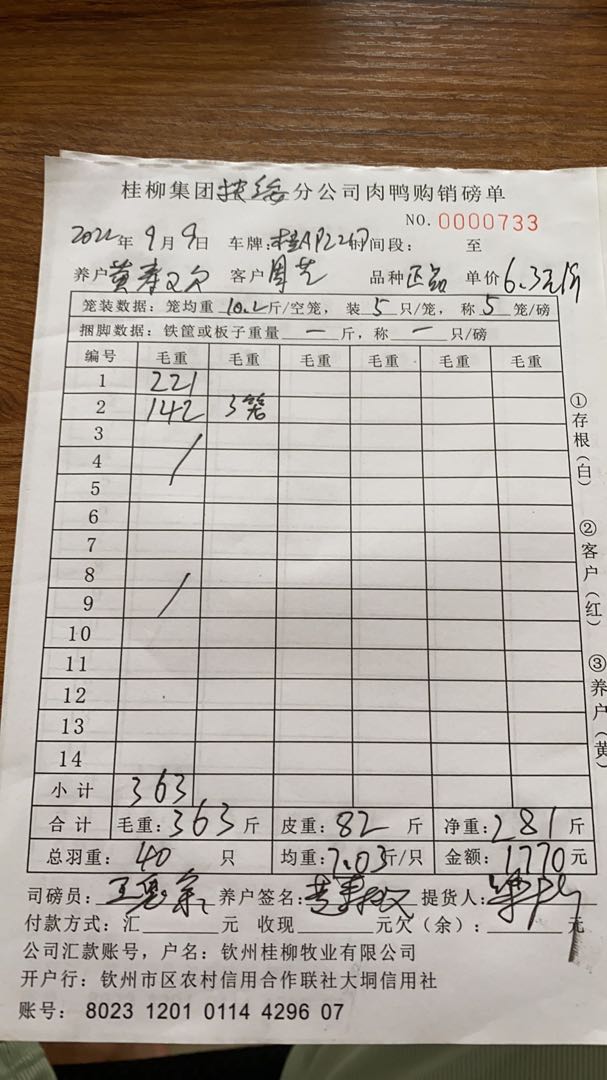 桂柳集团扶绥分公司肉鸭购销磅单
NO. 0000733
2022年9月9日 车牌: 时间段: 至
养户 客户 品种 正品 单价 6.3元/斤
笼装数据: 笼均重 10.2 斤/空笼, 装 5 只/笼, 称 5 笼/磅
捆脚数据: 铁筐或板子重量 — 斤, 称 — 只/磅
编号 毛重 毛重 毛重 毛重 毛重 毛重
1 221
2 142 3笼
3
4
5
6
7
8
9
10
11
12
13
14
小计 363
合计 毛重: 363 斤 皮重: 82 斤 净重: 281 斤
总羽重: 40 只 均重: 7.03 斤/只 金额: 1770 元
司磅员: 养户签名: 提货人:
付款方式: 汇 元 收现 元欠(余): 元
公司汇款账号, 户名: 钦州桂柳牧业有限公司
开户行: 钦州市区农村信用合作联社大垌信用社
账号: 8023 1201 0114 4296 07
①存根(白)
②客户(红)
③养户(黄)